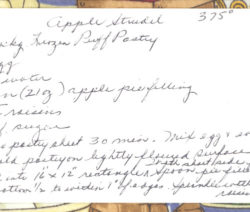 Apple Strudel 375°
pkg Frozen Puff Pastry
gg
water
n (21 oz) apple pie filling
raisins
f sugar
pastry sheet 30 min. Mix egg &
pastry on lightly floured surface
into 16" x 12" rectangle. Spoon pie filling
bottom 1/3 to within 1" of edges. Sprinkle with
raisin